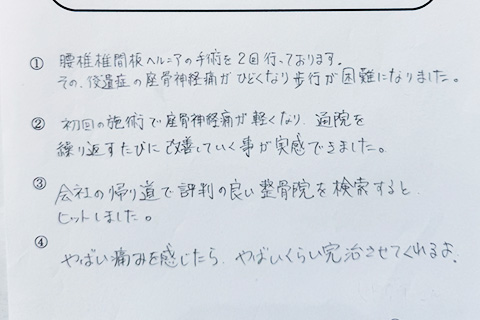 ① 腰椎椎間板ヘルニアの手術を2回行っております。
その、後遺症の座骨神経痛がひどくなり歩行が困難になりました。
② 初回の施術で座骨神経痛が軽くなり、通院を
繰り返すたびに改善していく事が実感できました。
③ 会社の帰り道で評判の良い整骨院を検索すると、
ヒットしました。
④ やばい痛みを感じたら、やばいくらい完治させてくれるよ。